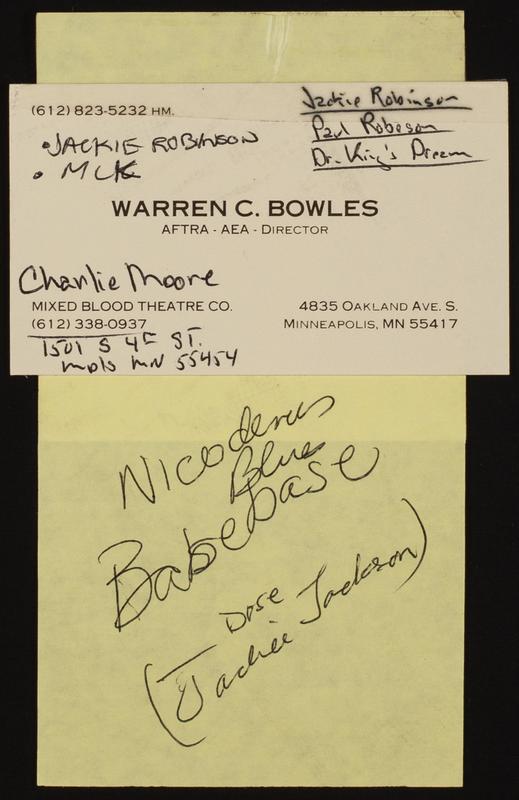 (612) 823-5232 HM.
Jackie Robinson
Paul Robeson
Dr. King's Dream
• JACKIE ROBINSON
• MLK
WARREN C. BOWLES
AFTRA - AEA - DIRECTOR
Charlie Moore
MIXED BLOOD THEATRE CO.
(612) 338-0937
4835 OAKLAND AVE. S.
MINNEAPOLIS, MN 55417
1501 S 4th ST.
mpls MN 55454
Nicodemus
Blues
Babe base
Dose
(Jackie Jackson)